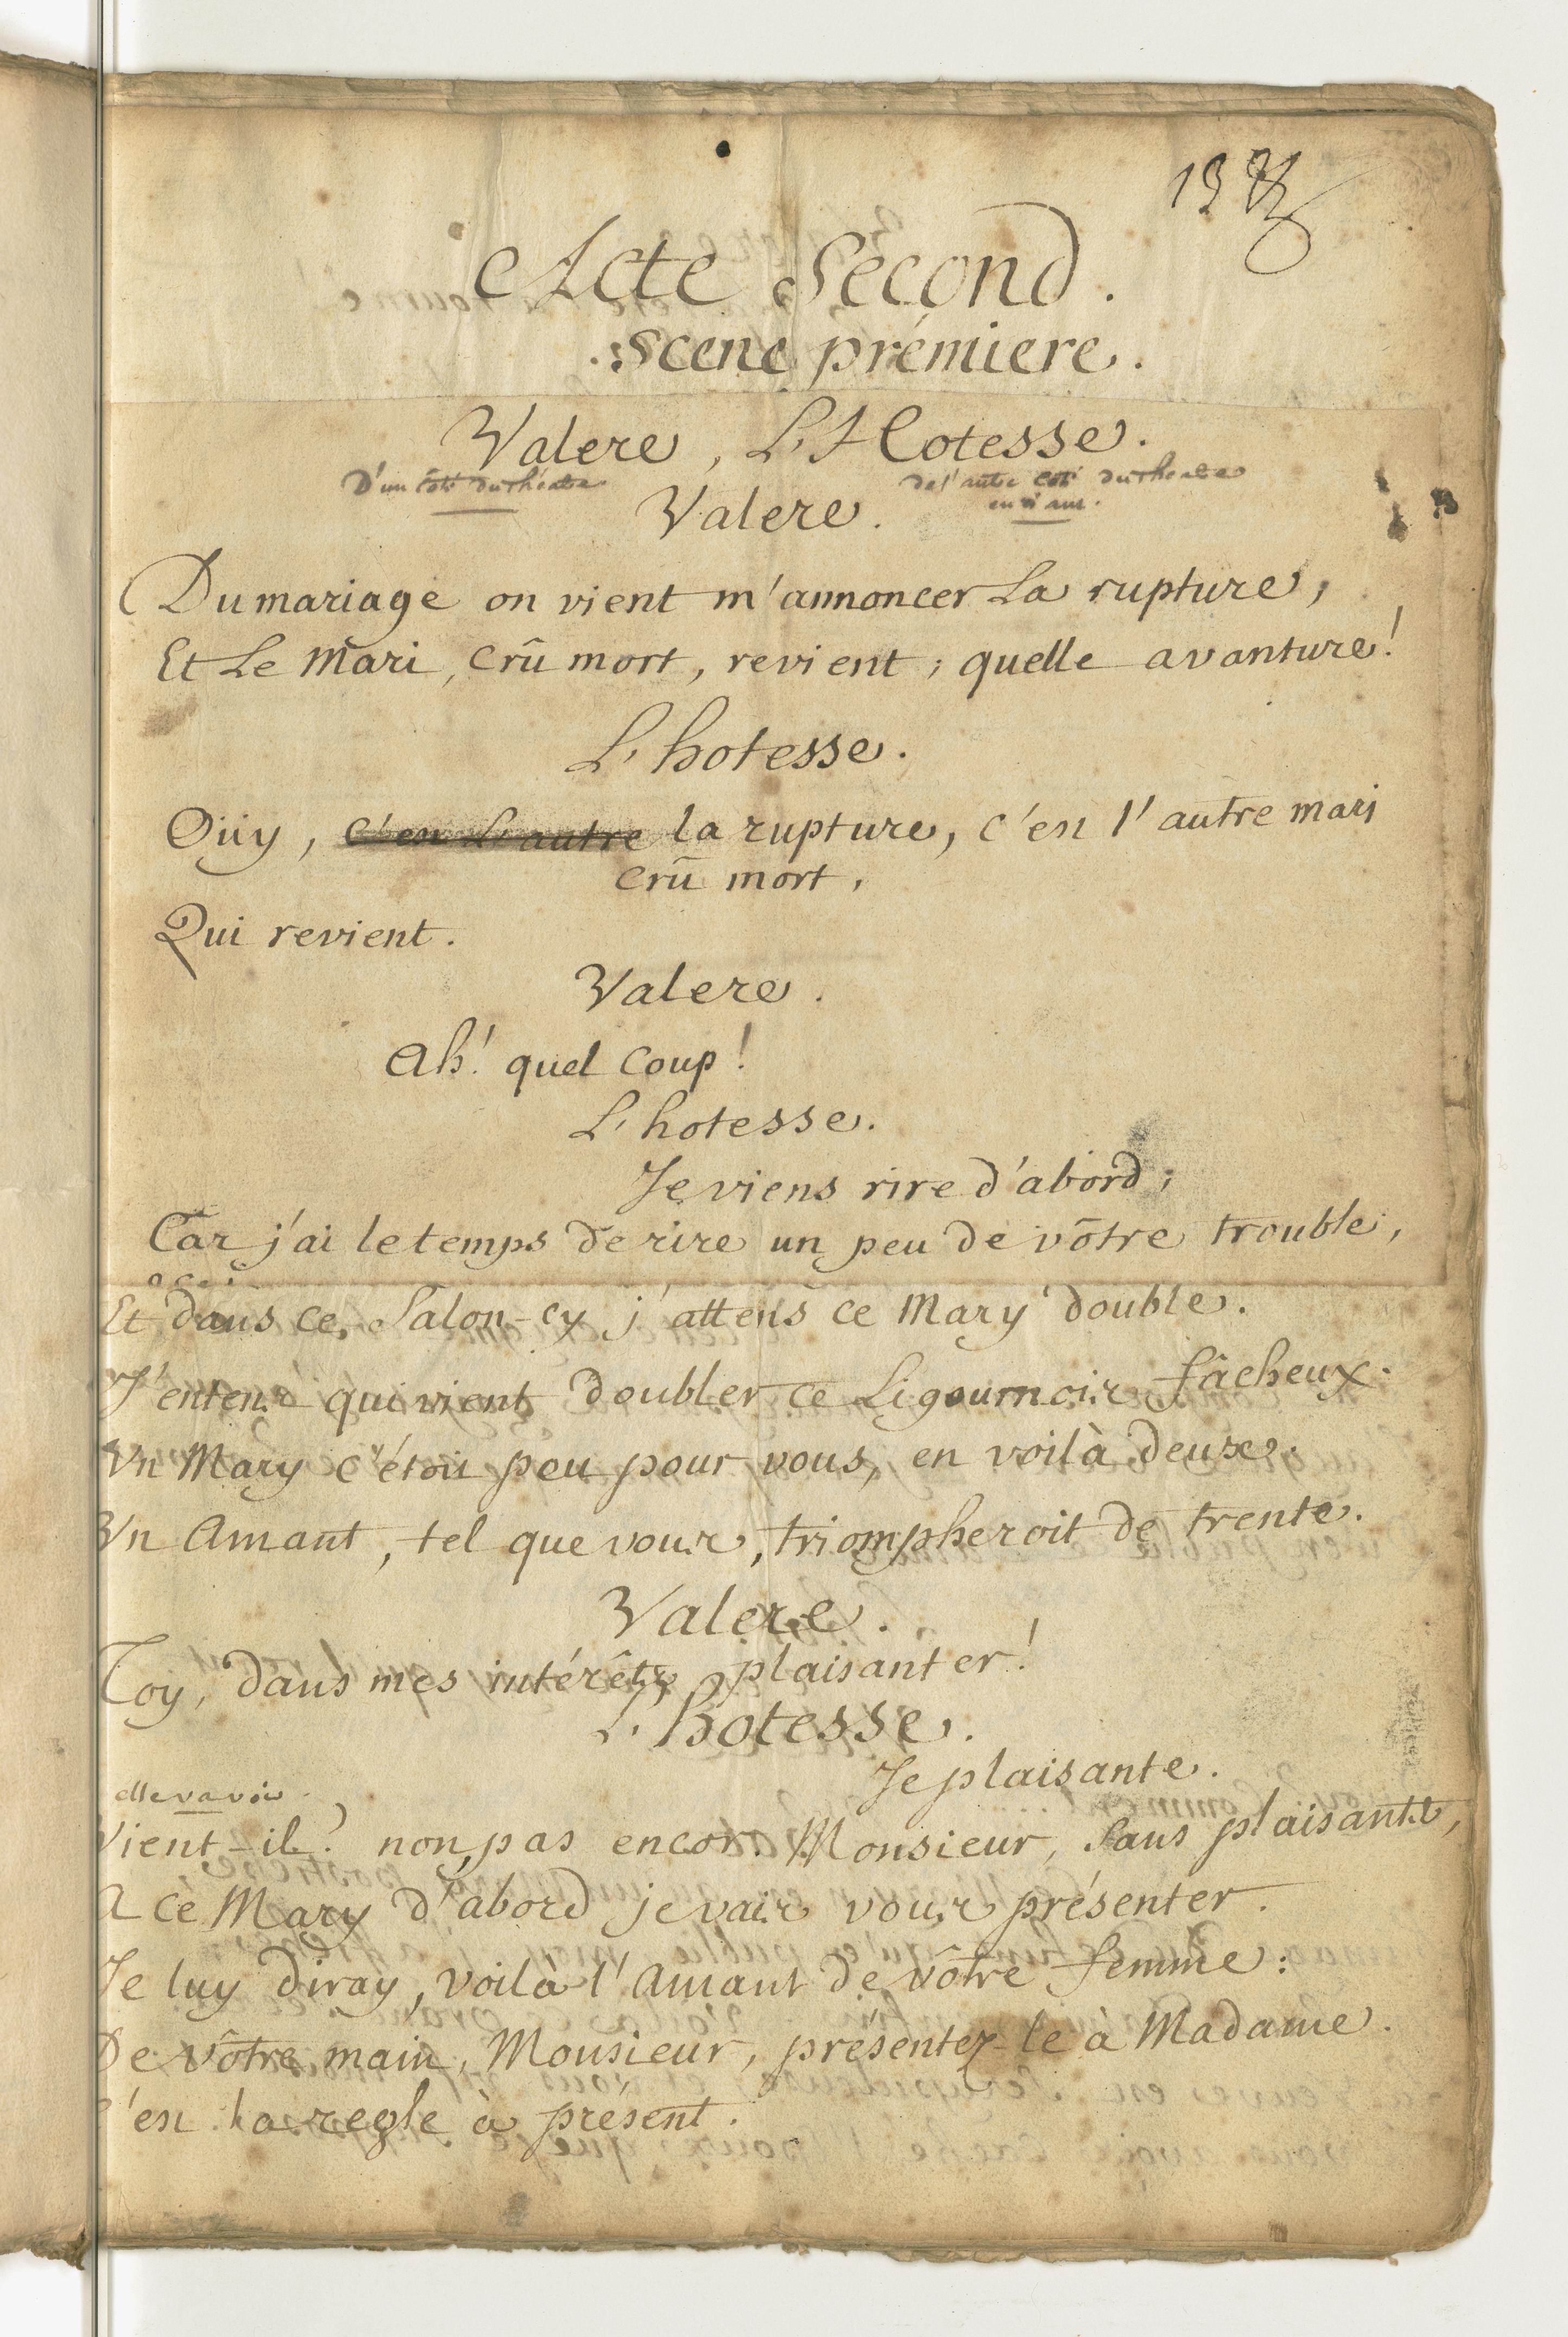 Acte Second.
Scene prémiere.
Valere, L'Hotesse.
D'un côté du théatre
de l'autre coté du theatre
en riant.
Valere.
Du mariage on vient m'annoncer La rupture,
Et Le Mari, crû mort, revient; quelle avanture!
L'hotesse.
Oüy, c'est L'autre la rupture, c'est l'autre mari
crû mort,
Qui revient.
Valere.
Ah! quel coup!
L'hotesse.
Je viens rire d'abord;
Car j'ai le temps de rire un peu de vôtre trouble,
Et dans ce Salon-cy j'attens ce Mary double.
J'entens qui vient doubler ce Ligournois fâcheux.
Un Mary c'étoit peu pour vous, en voilà deux.
Un Amant, tel que vous, triompheroit de trente.
Valere.
Toy, dans mes intérêts, plaisanter!
L'hotesse.
Je plaisante.
elle va voir.
Vient-il? non, pas encor. Monsieur, Sans plaisanter,
A ce Mary d'abord je vais vous présenter.
Je luy diray, voilà l'Amant de vôtre femme:
De vôtre main, Monsieur, présentez-le à Madame.
C'est la regle à présent.